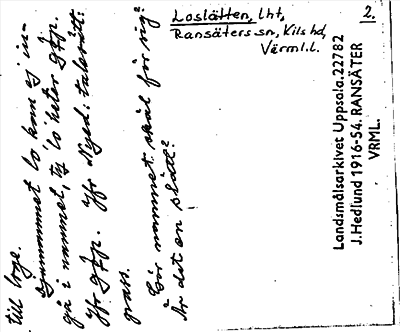 Loslåtten, lht,
Ransäters sn, Kils hd,
Värml. l.
2.
till loge.
Djurnamnet lo kan ej in-
gå i namnet, ty lo heter
Jfr Jfr Nyed:
grav.
Bör namnet skål för sig?
Är det en slått?
Landsmålsarkivet Uppsala. 22782
J. Hedlund 1916-54. RANSÄTER
VRML.